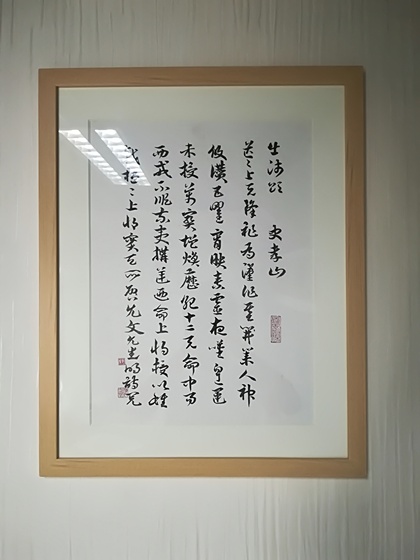 出師頌 史孝山
茫々上天降祚為漢作基開業人神
攸讚五曜宵映素靈夜嘆皇運
未授萬寶增煥歷紀十二天命中易
西戎不順東夷構逆乃命上將授以雄
戟桓々上將實天所啓允文允武明詩悅